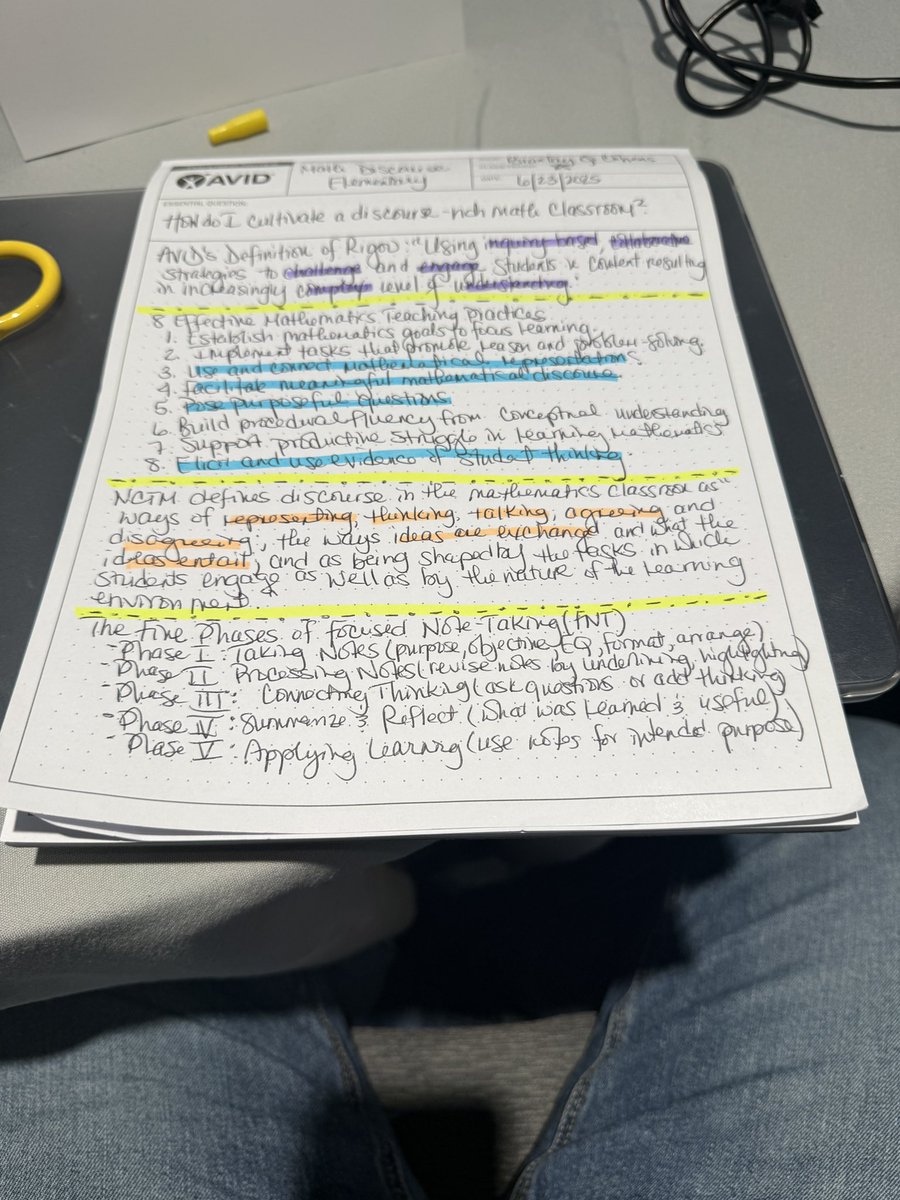 AVID
Math Discourse
Elementary
DATE: 6/23/2025
ESSENTIAL QUESTION:
How do I cultivate a discourse-rich math classroom?
AVID's Definition of Rigor: "Using inquiry based, collaborative
strategies to challenge and engage students in content resulting
in increasingly complex level of understanding."
8 Effective Mathematics Teaching Practices
1. Establish mathematics goals to focus learning.
2. Implement tasks that promote reason and problem-solving.
3. Use and connect mathematical representations.
4. Facilitate meaningful mathematical discourse
5. Pose purposeful questions
6. Build procedural fluency from conceptual understanding
7. Support productive struggle in learning mathematics
8. Elicit and use evidence of student thinking.
NCTM defines discourse in the mathematics classroom as "
ways of representing, thinking, talking, agreeing and
disagreeing; the ways ideas are exchanged and what the
ideas entail; and as being shaped by the tasks in which
students engage as well as by the nature of the learning
environment.
The Five Phases of Focused Note-Taking (FNT)
- Phase I: Taking Notes (purpose, objective, EQ, format, arrange)
- Phase II: Processing Notes (revise notes by underlining, highlighting)
- Phase III: Connecting Thinking (ask questions or add thinking)
- Phase IV: Summarize & Reflect (what was learned & useful)
- Phase V: Applying Learning (use notes for intended purpose)